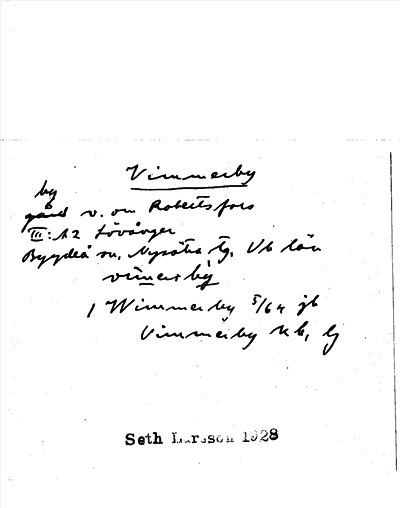 Vimmerby
by
gård v. om Robertsfors
III:12 Lövånger
Bygdeå sn, Nysätra tg, Vb län
vimerby
1 Wimmerby 5/64 jb
Vimmerby Kb, Lg
Seth Larsson 1928